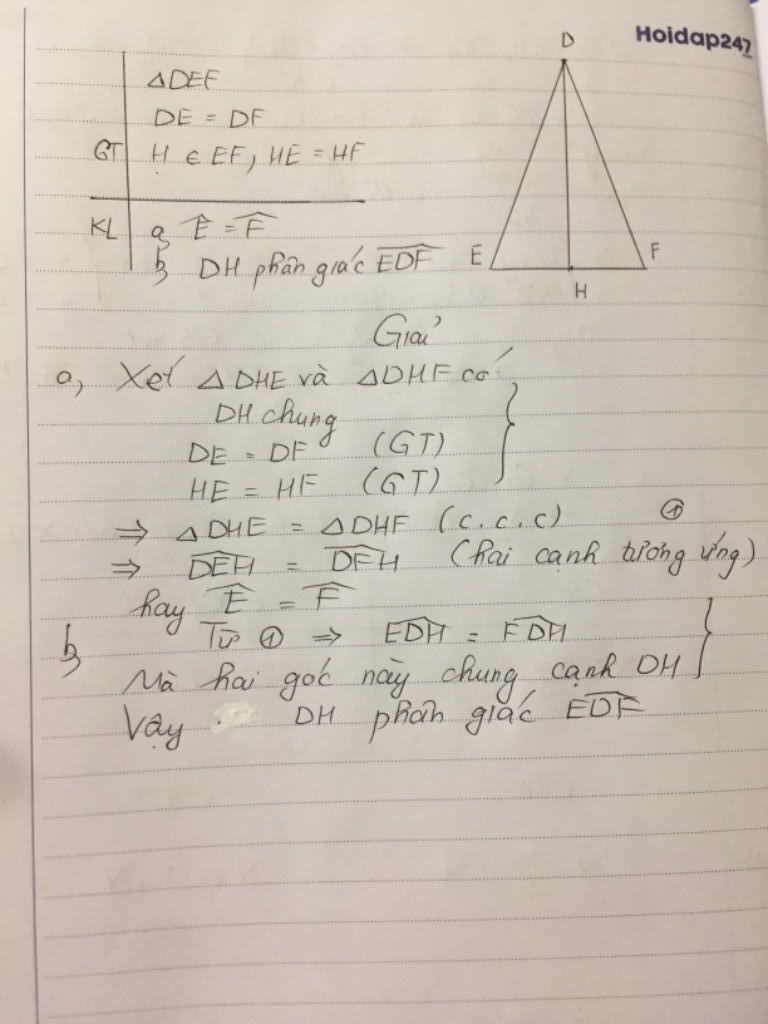 Hoidap247
D
ΔDEF
DE = DF
GT H ∈ EF, HE = HF
KL a, Ê = F̂
b, DH phân giác \widehat{EDF}
E F
H
Giải
a, Xét ΔDHE và ΔDHF có
DH chung
DE = DF (GT)
HE = HF (GT)
⇒ ΔDHE = ΔDHF (c.c.c) ①
⇒ \widehat{DEH} = \widehat{DFH} (hai cạnh tương ứng)
hay Ê = F̂
b, Từ ① ⇒ \widehat{EDH} = \widehat{FDH}
Mà hai góc này chung cạnh DH
Vậy DH phân giác \widehat{EDF}